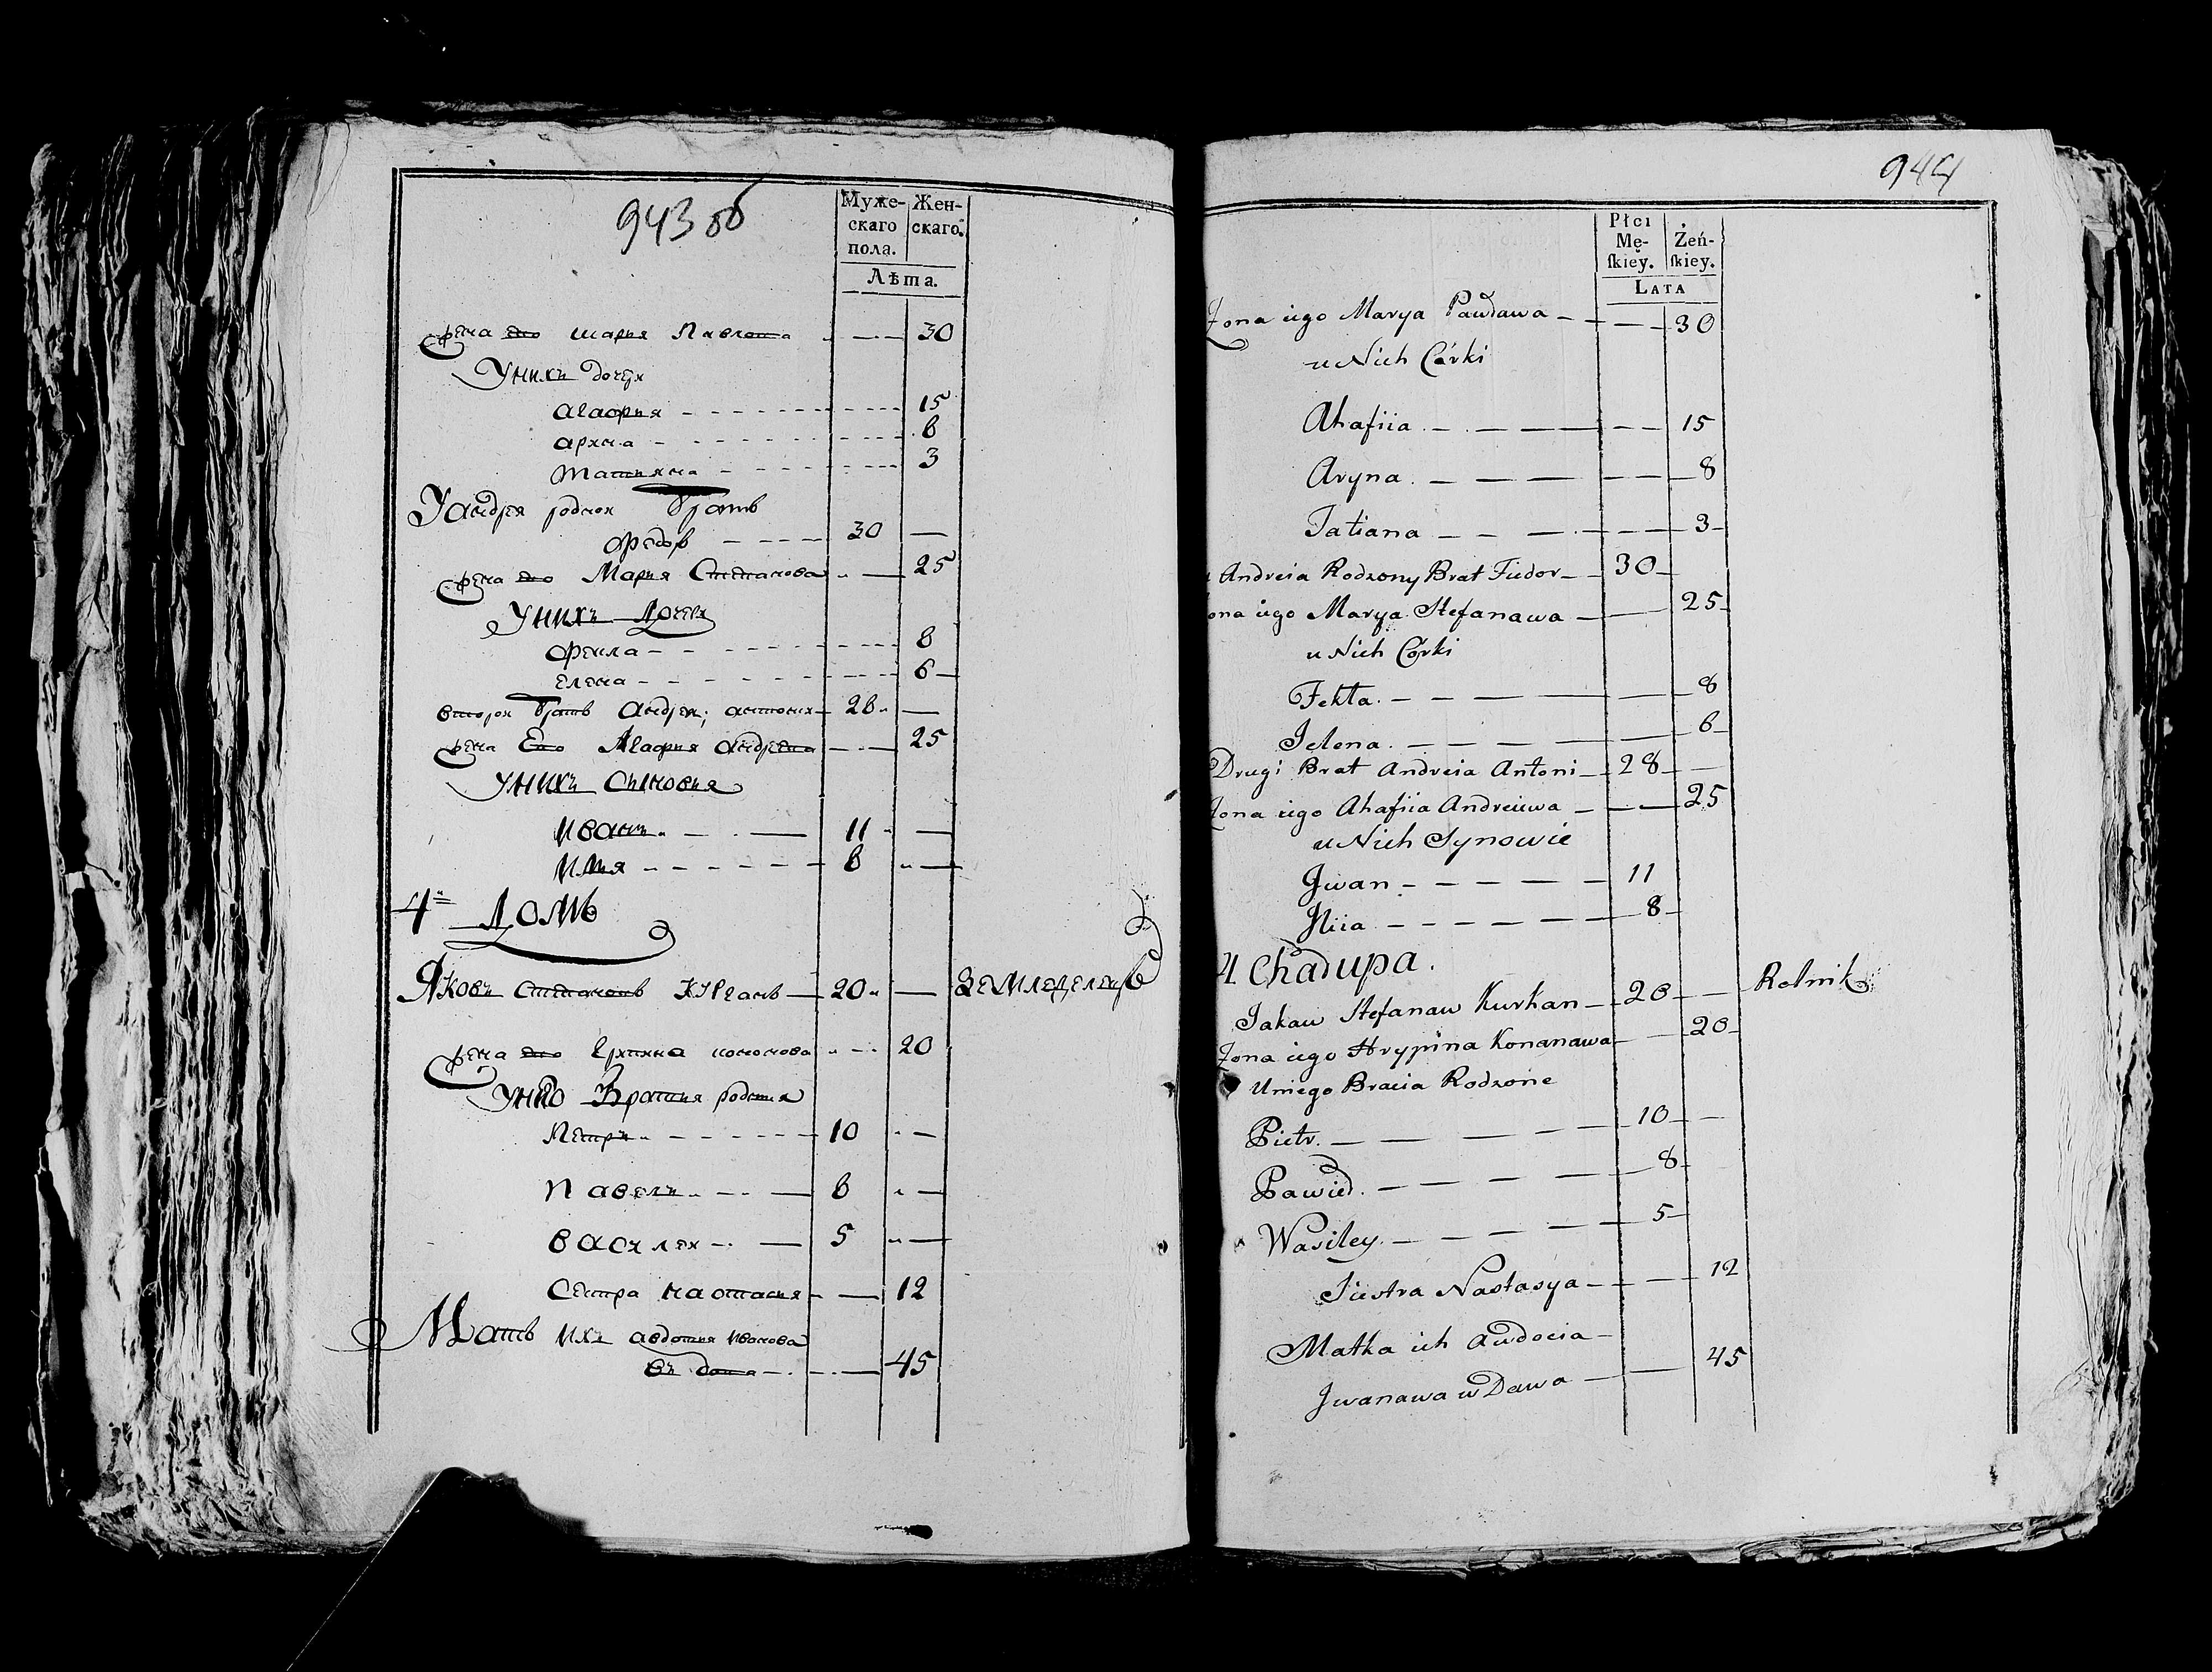 943 об
Муже-
скаго
пола.
Жен-
скаго.
Лѣта.
жена его марья Павлова 30
Унихъ дочери
агафья 15
арина 8
татьяна 3
Уандрея родной братъ
федоръ 30
жена его Марья Степанова 25
Унихъ Дочери
фекла 8
елена 6
второй братъ андрея; антонъ 28
жена Его Агафья андреева 25
Унихъ Сыновья
Иванъ 11
Илья 8
4й Домъ
Яковъ Степановъ Курганъ 20 Земледелецъ
жена его Грипина кононова 20
Унего Братья родныя
Петръ 10
Павелъ 8
Василей 5
Сестра настасья 12
Мать ихъ авдотья иванова
45
944
Płci
Mę-
skiey.
Żeń-
skiey.
LATA
Zona iego Marya Pawława 30
u Nich Córki
Ahafiia 15
Aryna 8
Tatiana 3
Andreia Rodzony Brat Fiedor 30
ona iego Marya Stefanawa 25
u Nich Córki
Fekła 8
Jelena 6
Drugi Brat Andreia Antoni 28
Zona iego Ahafiia Andreiewa 25
u Nich Synowie
Jwan 11
Jliia 8
4 Chałupa.
Jakaw Stefanaw Kurhan 20 Rolnik
Zona iego Hrypina Konanawa 20
Uniego Bracia Rodzone
Pietr. 10
Pawieł. 8
Wasiley. 5
Siestra Nastasya 12
Matka ich Awdocia
Jwanawa wDawa 45